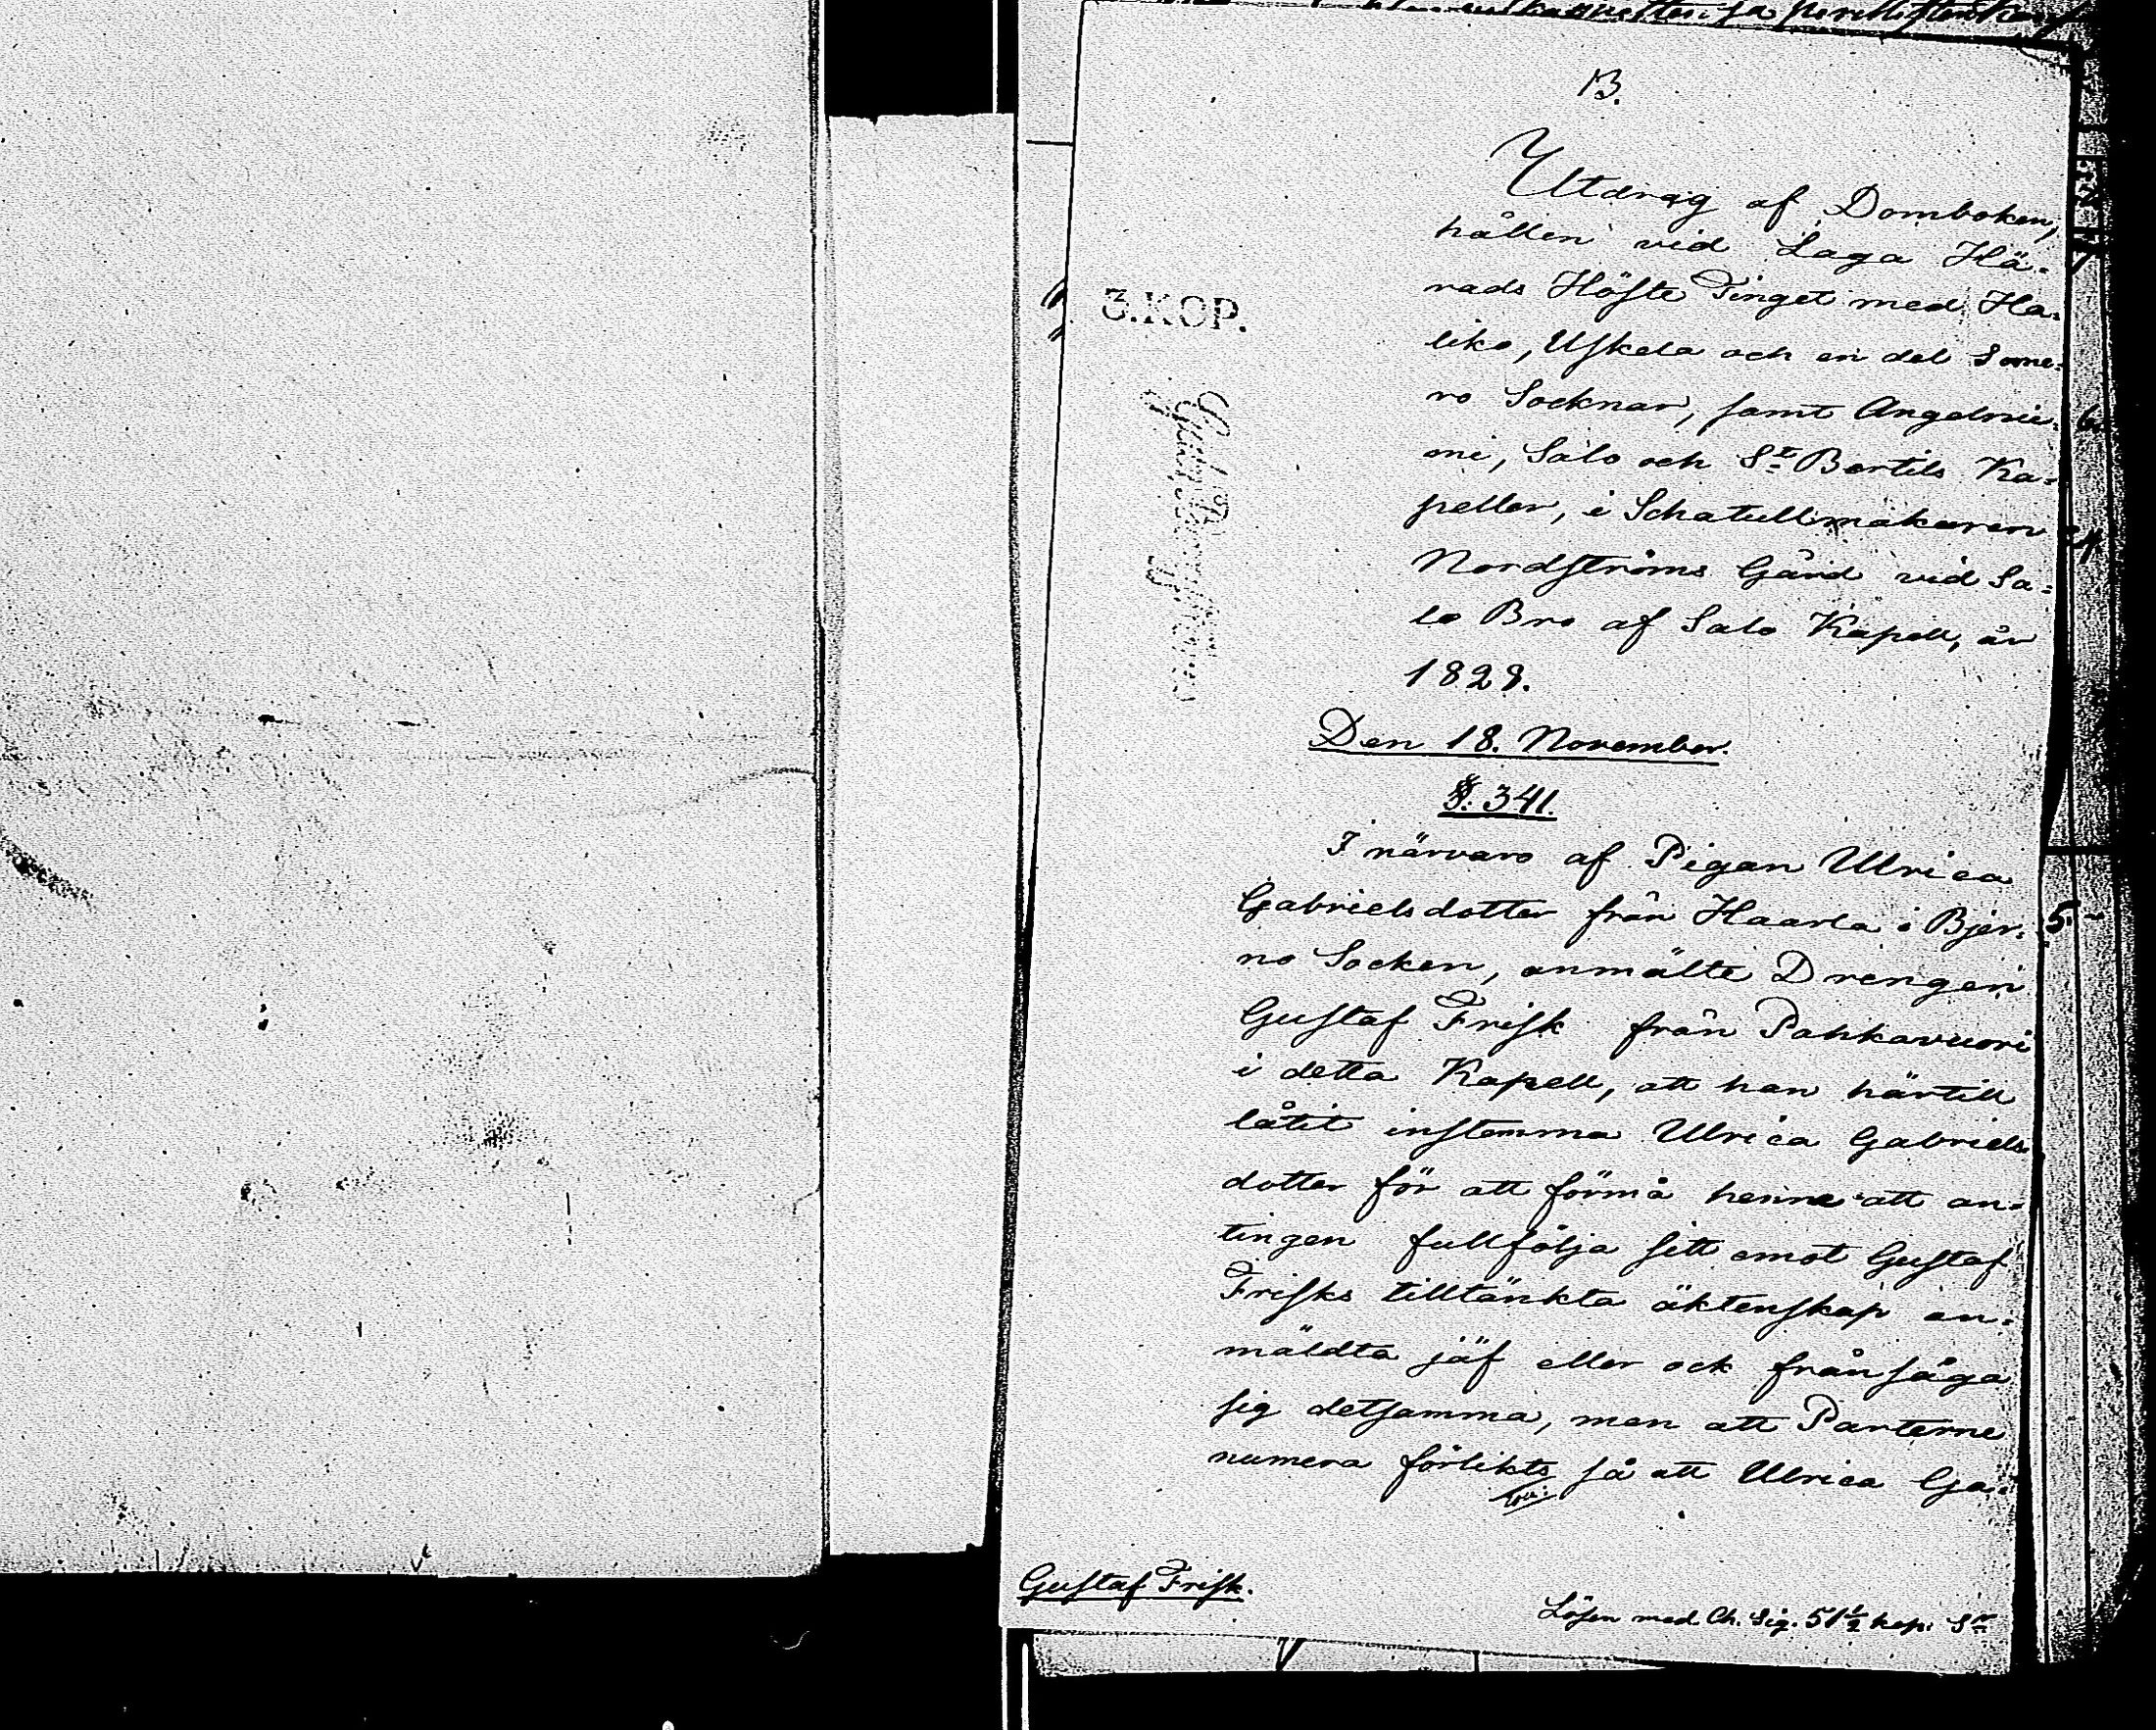 13.
Utdrag af Domboken,
hållen vid Laga Hä-
rads Höste Tinget med Ha-
liko, Uskela och en del Some-
ro Socknar, samt Angelnie-
mi, Salo och S:t Bertils Ka-
peller, i Schatullmakaren
Nordströms Gård vid Sa-
lo Bro af Salo Kapell, år
1828.
3.KOP.
Den 18. November.
§. 341.
I närvaro af Pigan Ulrica
Gabrielsdotter från Haarla i Bjer-
no Socken, anmälte Drengen
Gustaf Frisk från Pahkavuori
i detta Kapell, att han härtill
låtit instemma Ulrica Gabriels
dotter för att förmå henne att an-
tingen fullfölja sitt emot Gustaf
Frisks tilltänkta äktenskap an-
mäldta jäf eller ock frånsäga
sig detsamma, men att Parterne
numera förlikts så att Ulrica Ga-
Gustaf Frisk.
Lösen med Ch. Sig. 51 1/2 kop. S:r